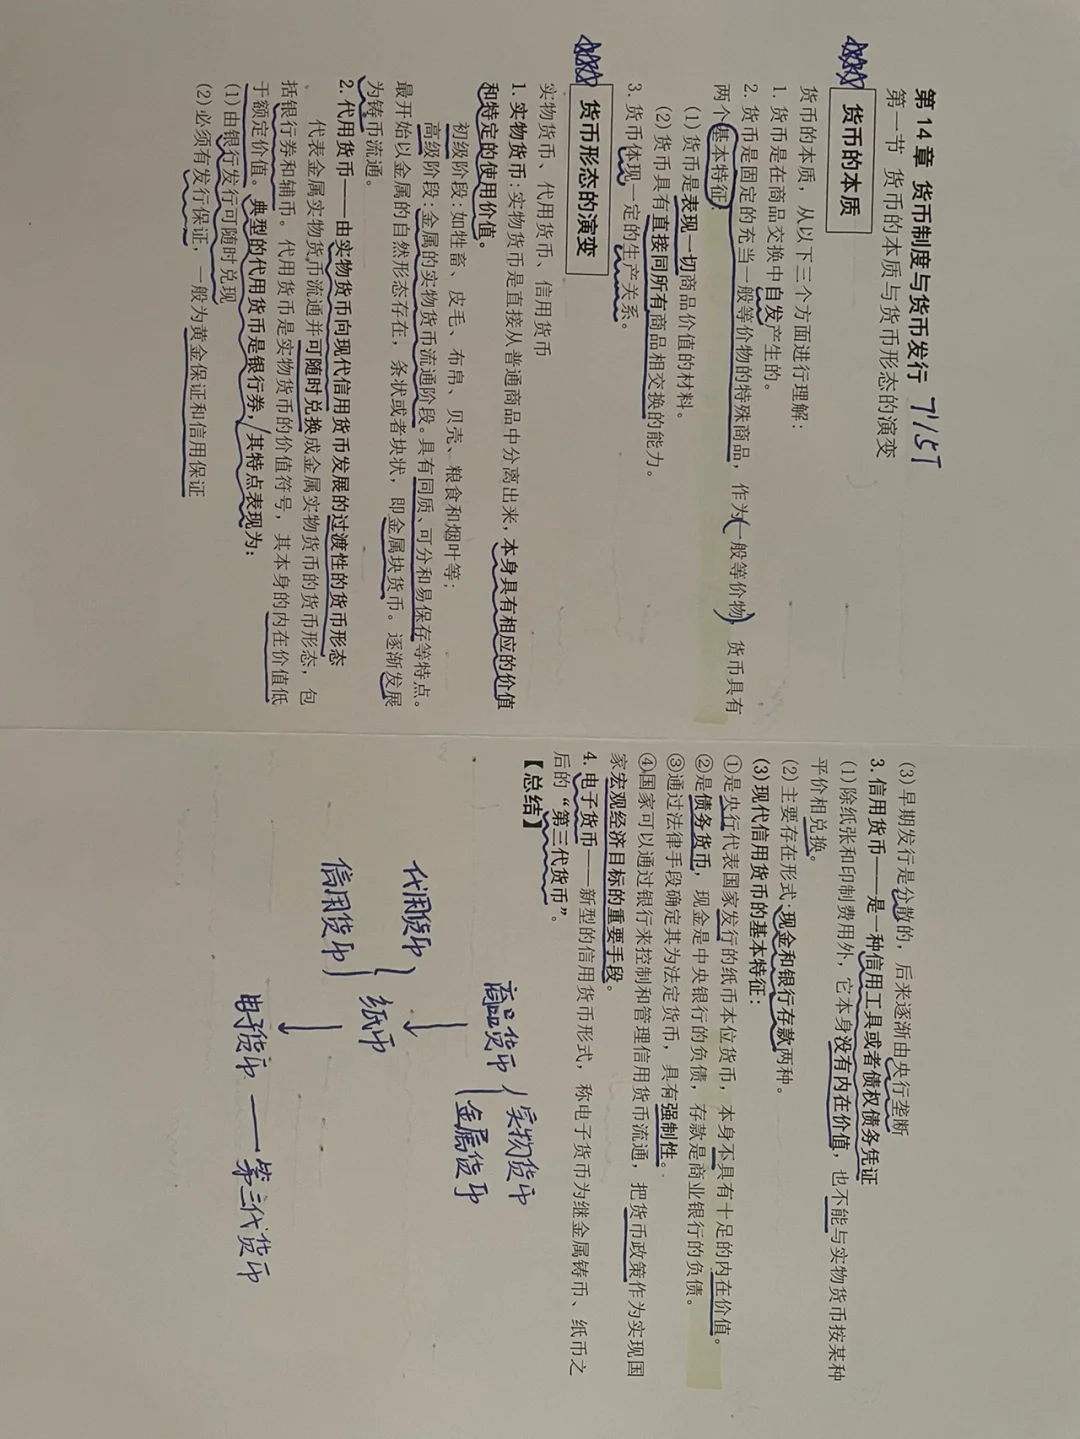 第14章 货币制度与货币发行 7/15T
第一节 货币的本质与货币形态的演变
货币的本质
货币的本质，从以下三个方面进行理解：
1. 货币是在商品交换中自发产生的。
2. 货币是固定的充当一般等价物的特殊商品，作为一般等价物，货币具有
两个基本特征：
(1)货币是表现一切商品价值的材料。
(2)货币具有直接同所有商品相交换的能力。
3. 货币体现一定的生产关系。
货币形态的演变
实物货币、代用货币、信用货币
1. 实物货币：实物货币是直接从普通商品中分离出来，本身具有相应的价值
和特定的使用价值。
初级阶段：如牲畜、皮毛、布帛、贝壳、粮食和烟叶等；
高级阶段：金属的实物货币流通阶段。具有同质、可分和易保存等特点。
最开始以金属的自然形态存在，条状或者块状，即金属块货币。逐渐发展
为铸币流通。
2. 代用货币——由实物货币向现代信用货币发展的过渡性的货币形态
代表金属实物货币流通并可随时兑换成金属实物货币的货币形态，包
括银行券和辅币。代用货币是实物货币的价值符号，其本身的内在价值低
于额定价值。典型的代用货币是银行券，其特点表现为：
(1)由银行发行可随时兑现
(2)必须有发行保证，一般为黄金保证和信用保证
(3)早期发行是分散的，后来逐渐由央行垄断
3. 信用货币——是一种信用工具或者债权债务凭证
(1)除纸张和印制费用外，它本身没有内在价值，也不能与实物货币按某种
平价相兑换。
(2)主要存在形式：现金和银行存款两种。
(3)现代信用货币的基本特征：
①是央行代表国家发行的纸币本位货币，本身不具有十足的内在价值。
②是债务货币，现金是中央银行的负债，存款是商业银行的负债。
③通过法律手段确定其为法定货币，具有强制性。
④国家可以通过银行来控制和管理信用货币流通，把货币政策作为实现国
家宏观经济目标的重要手段。
4. 电子货币——新型的信用货币形式，称电子货币为继金属铸币、纸币之
后的“第三代货币”。
【总结】
商品货币
实物货币
金属货币
代用货币
信用货币
纸币
电子货币 —— 第三代货币